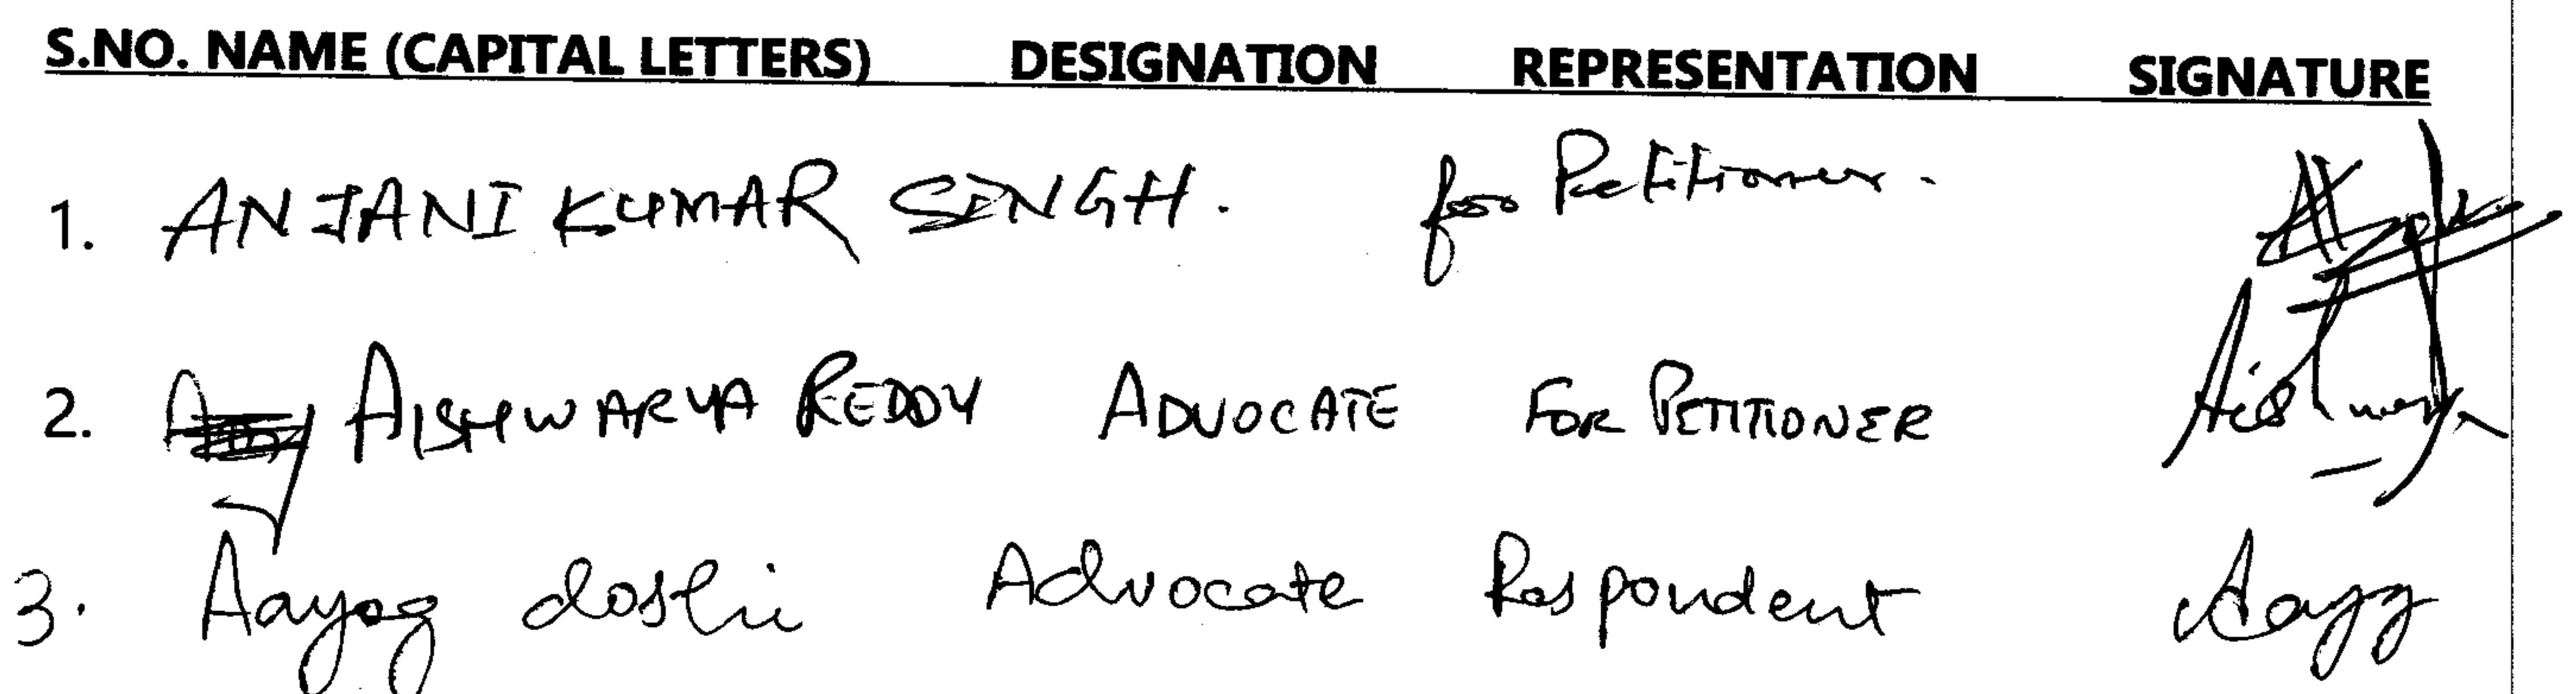 S.NO. NAME (CAPITAL LETTERS) DESIGNATION REPRESENTATION SIGNATURE
1. ANJANI KUMAR SINGH. for Petitioner.
2. AISHWARYA REDDY ADVOCATE FOR PETITIONER Aishwarya
3. Aayog doshi Advocate Respondent Aayog